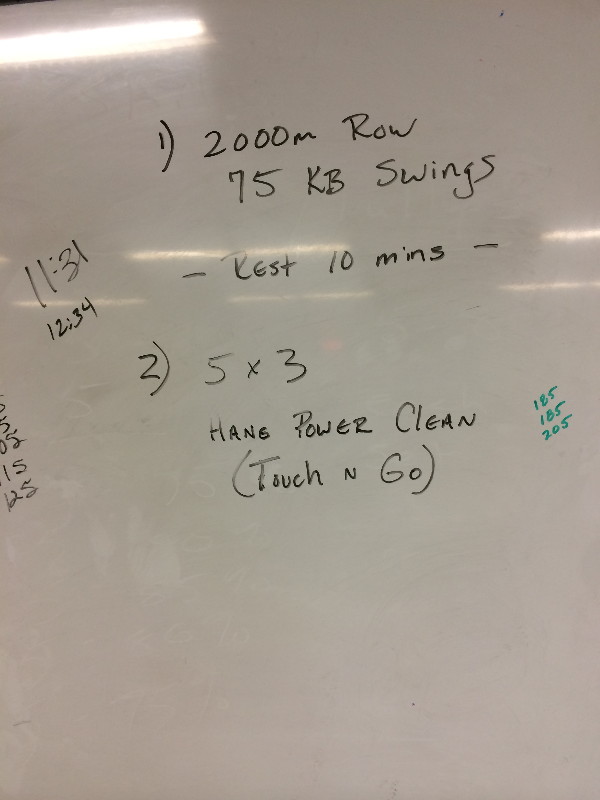 1) 2000m Row
75 KB Swings
11:31
12:34
- Rest 10 mins -
2) 5 x 3
HANG POWER CLEAN
(Touch N Go)
185
185
205
115
125